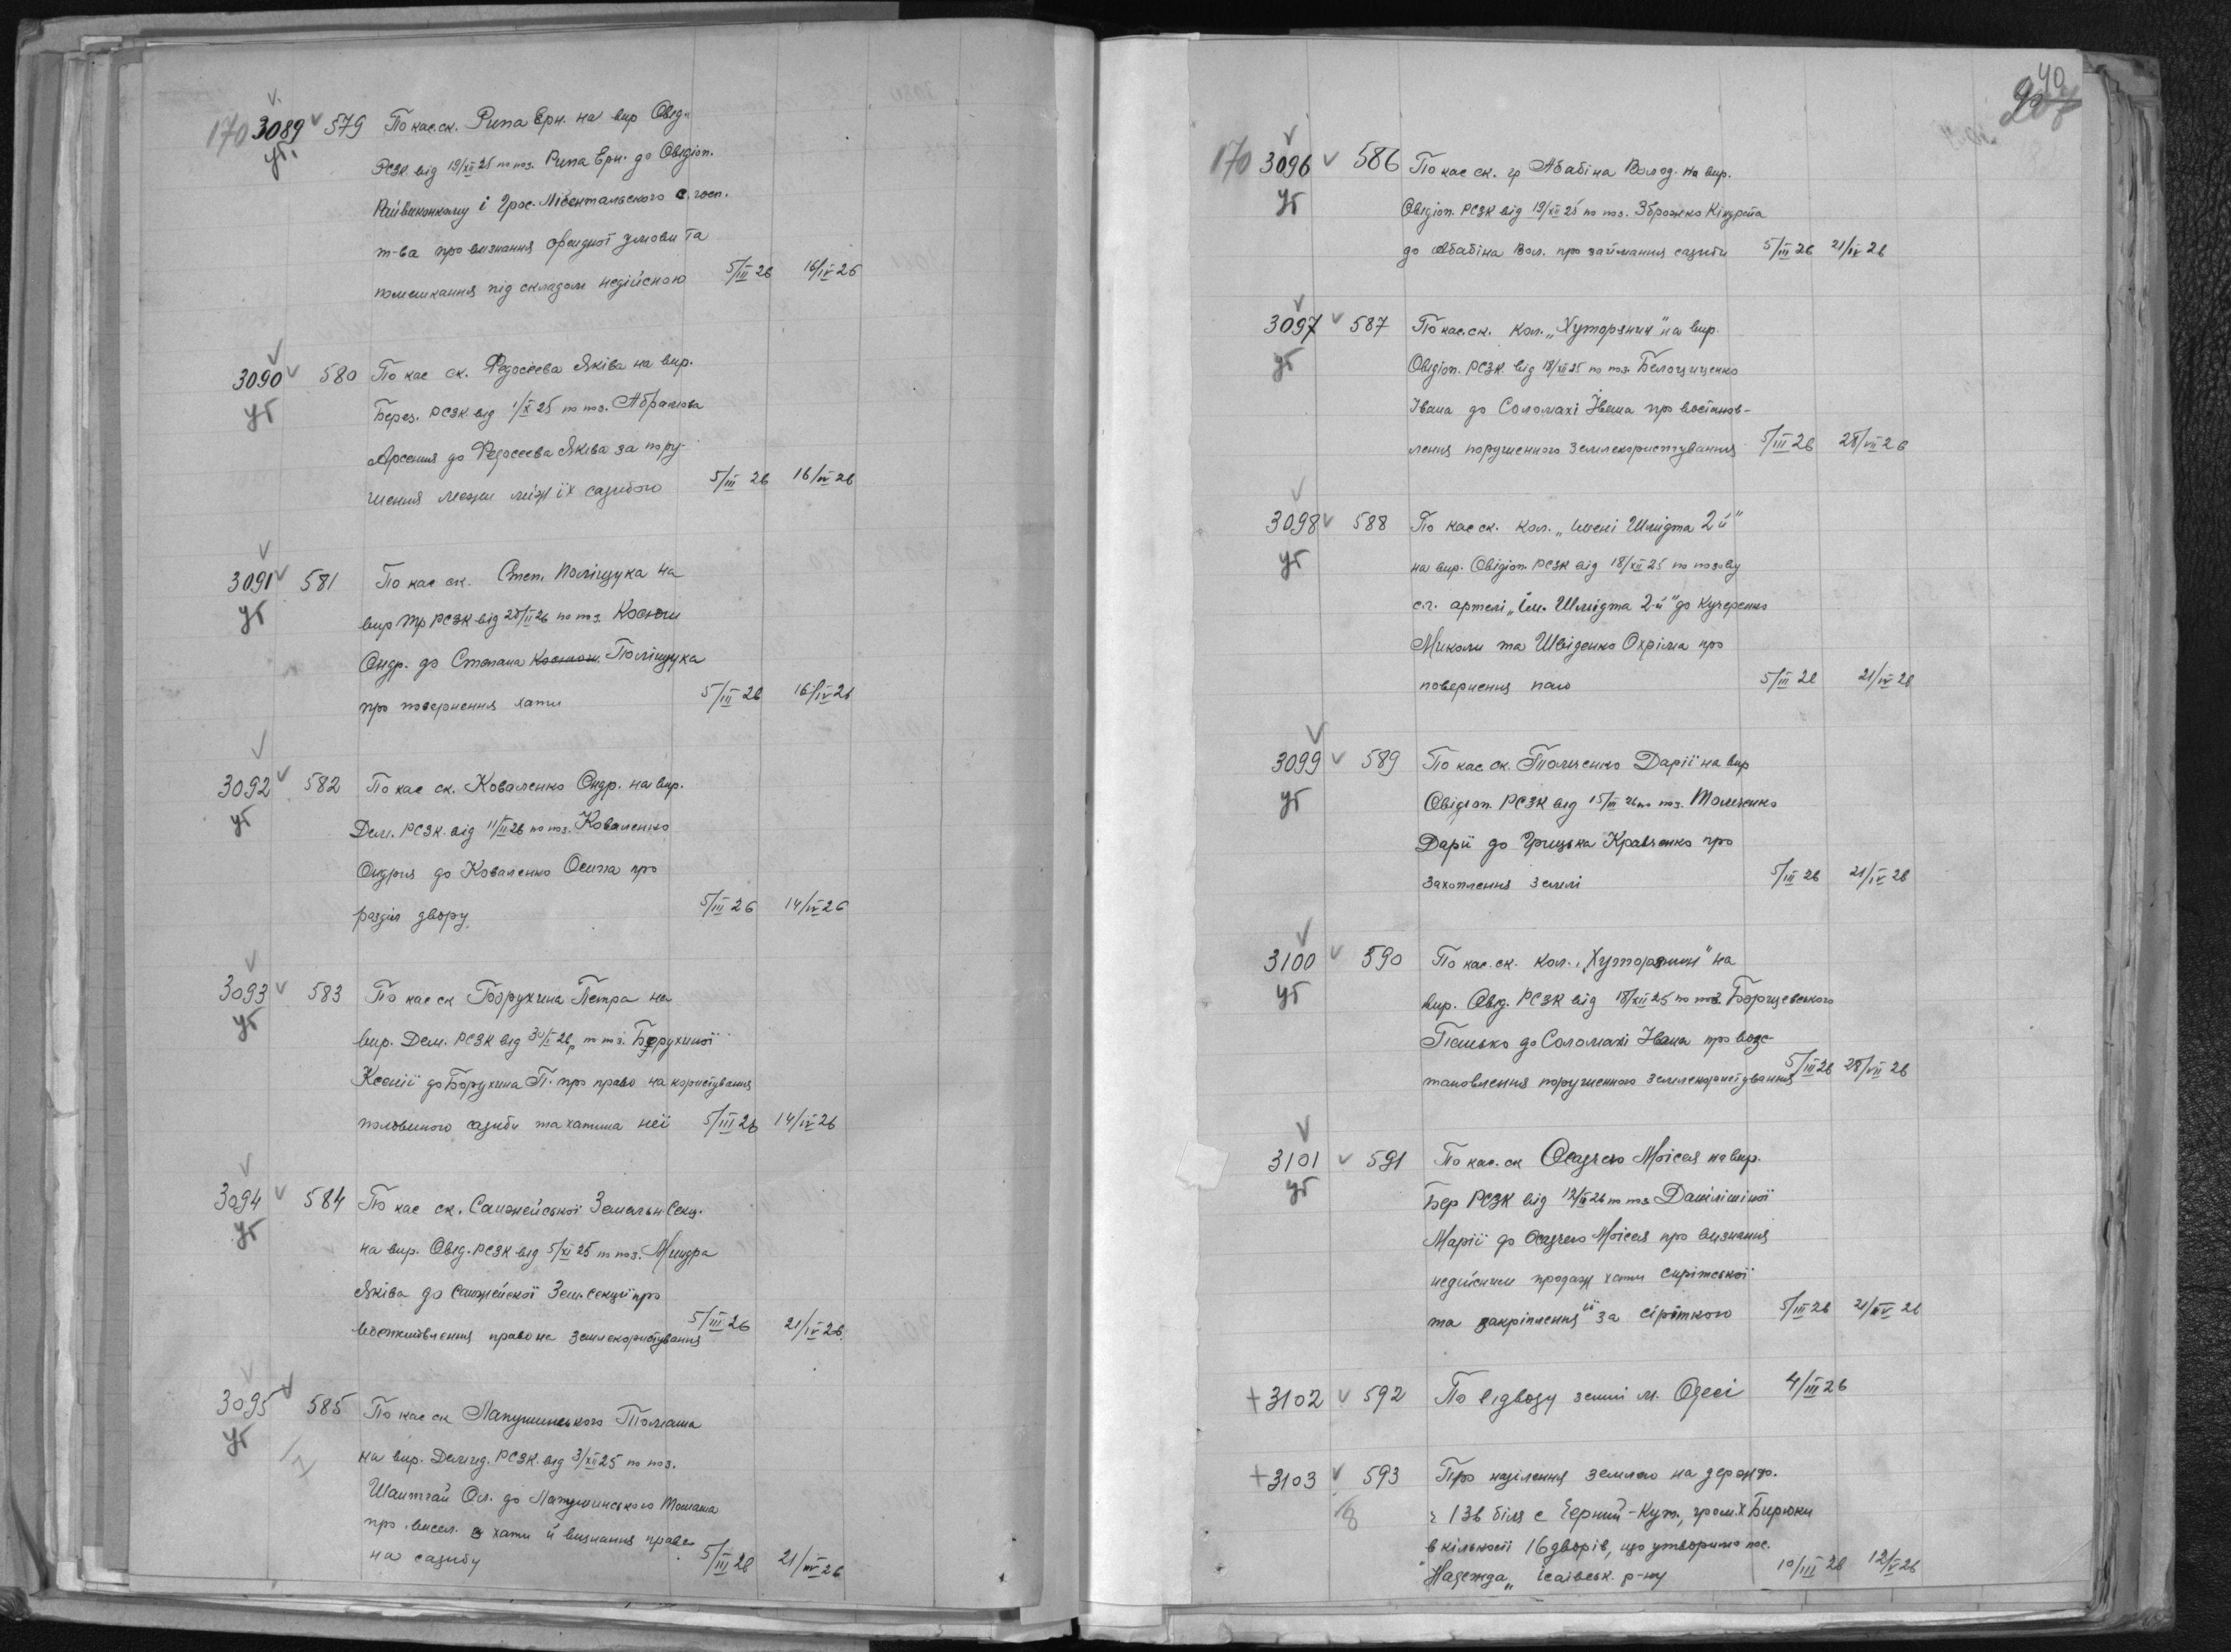 170 3089 579 По кас.ск. Рипа Ерн. на вир Овід.
уг. РСЗК від 19/XII 25 по поз. Рипа Ерн. до Овідіоп.
Райвиконкому і Грос. Лібентальського с. госп.
т-ва про визнання орендної умови та
помешкання під складом недійсною 5/III 26 16/IV 26
3090 580 По кас ск. Федосеева Яківа на вир.
уг Берез. РСЗК від 1/X 25 по поз. Абрамова
Арсения до Федосеева Яківа за пору-
шення межи між їх садибою 5/III 26 16/IV 26
3091 581 По кас ск. Степ. Поліщука на
уг вир РСЗК від 25/II 26 по поз. Косюги
Ондр. до Степана Поліщука
про повернення хати 5/III 26 16/IV 26
3092 582 По кас ск. Коваленко Ондр. на вир.
уг Дем. РСЗК від 11/II 26 по поз. Коваленко
Ондрія до Коваленко Осипа про
розділ двору. 5/III 26 14/IV 26
3093 583 По кас ск Борухина Петра на
уг вир. Дем. РСЗК від 30/I 26 р по поз. Борухиної
Ксенії до Борухина П. про право на користування
половиною садиби та хатина неї 5/III 26 14/IV 26
3094 584 По кас ск. Санжейської Земельн. Секц.
уг на вир. Овід. РСЗК від 5/XI 25 по поз. Миндра
Яківа до Санжейскої Зем. секції про
право на землекористування 5/III 26 21/IV 26
3095 585 По кас ск Лапушинського Томаша
уг на вир. РСЗК. від 3/XII 25 по поз.
Ол. до Лапушинського Томаша
про висел. з хати й визнання право
на садибу 5/III 26 21/IV 26
40
170 3096 586 По кас ск. гр Абабіна Волод. на вир.
уг Овідіоп. РСЗК від 19/XII 25 по поз. Зброжко Кіндрата
до Абабіна Вол. про займання садиби 5/III 26 21/IV 26
3097 587 По кас.ск. кол. „Хуторянин" на вир.
уг Овідіоп. РСЗК. від 18/XII 25 по поз. Белоцищенко
Івана до Соломахі Івана про востанов-
лення порушенного землекористування 5/III 26 28/VII 26
3098 588 По кас ск. кол. „імені Шмідта 2й"
уг на вир. Овідіоп. РСЗК від 18/XII 25 по позову
с.г. артелі „Ім. Шмідта 2-й" до Кучеренко
Миколи та Швіденко Охріма про
повернення паю 5/III 26 21/IV 26
3099 589 По кас ск. Толмченко Дарії на вир
уг Овідіоп. РСЗК від 15/II 26 по поз. Толмченко
Дарії до Грицька Кравченко про
захоплення землі 5/III 26 21/IV 26
3100 590 По кас. ск. кол. „Хуторянин" на
уг вир. Овід. РСЗК від 18/XII 25 по поз. Борщевського
до Соломахі Івана про возс-
тановлення порушенного землекористування 5/III 26 28/VII 26
3101 591 По кас. ск Осадчего Мойсея на вир.
уг Бер РСЗК від 12/II 26 по поз. Даніліпіної
Марії до Осадчего Мойсея про визнання
недійсним продаж хати сирітської
та закріплення її за сіріткою 5/III 26 21/IV 26
+3102 592 По відводу землі м. Одесі 4/III 26
+3103 593 Про наділення землею на держф.
8 ч 136 біля с Чорний-Кут, гром. х Бирюки
в кількосіі 16 дворів, що утворило пос.
"Надежда" Ісаівськ. р-ну 10/III 26 12/V 26